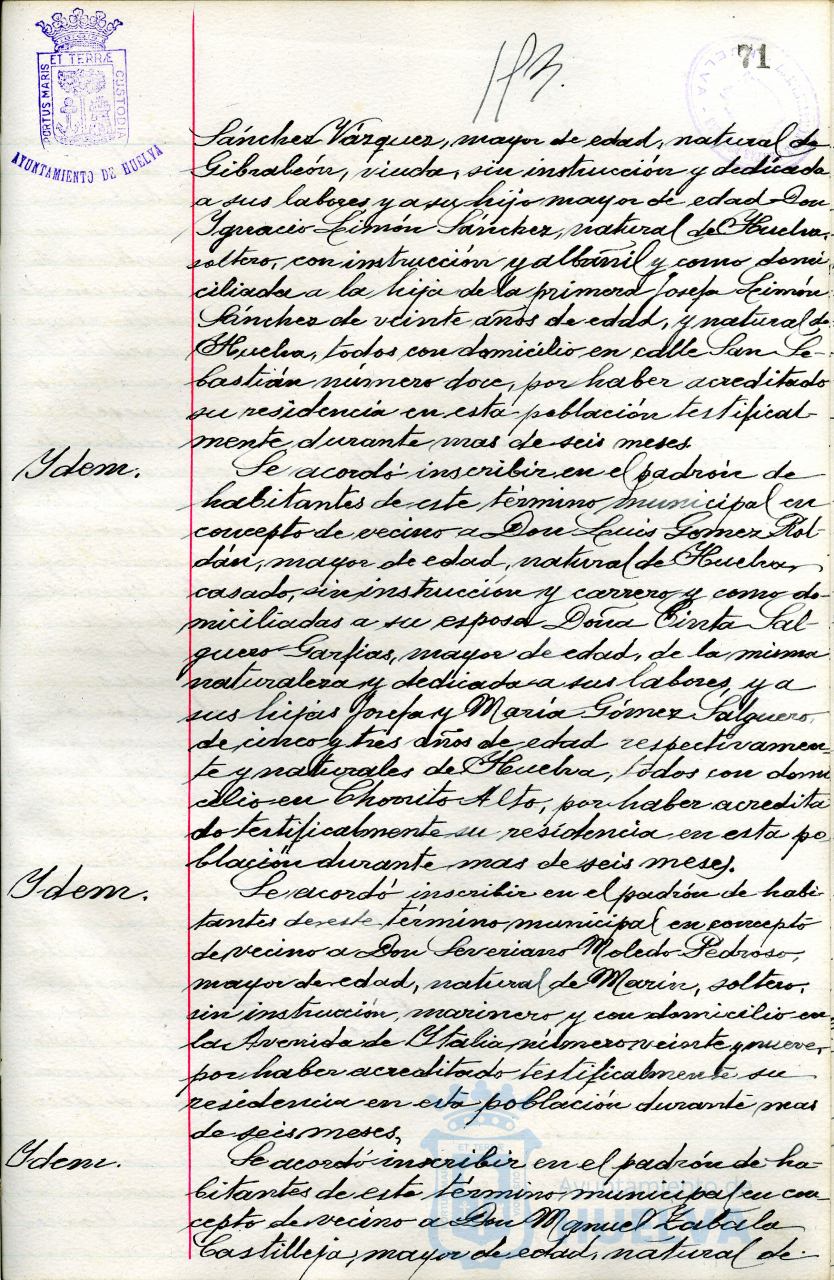 PORTUS MARIS ET TERRÆ CUSTODIA
AYUNTAMIENTO DE HUELVA
71
Sánchez Vázquez, mayor de edad, natural de
Gibraleón, viuda, sin instrucción y dedicada
a sus labores y a su hijo mayor de edad Don
Ygnacio Limón Sánchez, natural de Huelva,
soltero, con instrucción y albañil y como domi
ciliada a la hija de la primera Josefa Limón
Sánchez de veinte años de edad, y natural de
Huelva, todos con domicilio en calle San Se-
bastián número doce, por haber acreditado
su residencia en esta población testifical-
mente durante mas de seis meses
Ydem.
Se acordó inscribir en el padrón de
habitantes de este término municipal en
concepto de vecino a Don Luis Gomez Rol-
dán, mayor de edad, natural de Huelva,
casado, sin instrucción y carrero y como do-
miciliadas a su esposa Doña Cinta Sal-
guero Garfias, mayor de edad, de la misma
naturaleza y dedicada a sus labores, y a
sus hijas Josefa y María Gómez Salguero,
de cinco y tres años de edad respectivamen-
te y naturales de Huelva, todos con domi
cilio en Chorrito Alto, por haber acredita
do testificalmente su residencia en esta po
blación durante mas de seis meses.
Ydem.
Se acordó inscribir en el padrón de habi-
tantes de este término municipal en concepto
de vecino a Don Severiano Moledo Pedroso,
mayor de edad, natural de Marín, soltero,
sin instrucción, marinero y con domicilio en
la Avenida de Italia número veinte y nueve,
por haber acreditado testificalmente su
residencia en esta población durante mas
de seis meses,
Ydem.
Se acordó inscribir en el padrón de ha-
bitantes de este término municipal en con-
cepto de vecino a Don Manuel Zabala
Castilleja, mayor de edad, natural de
Ayuntamiento de
HUELVA